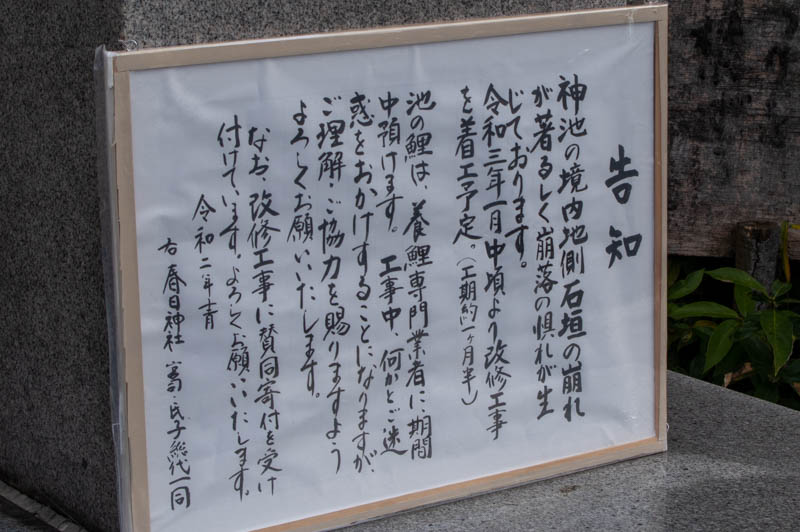 告知
神池の境内地側石垣の崩れ
が著るしく崩落の惧れが生
じております。
令和三年一月中頃より改修工事
を着工予定。(工期約一ヶ月半)
池の鯉は、養鯉専門業者に、期間
中預けます。工事中、何かとご迷
惑をおかけすることになりますが
ご理解・ご協力を賜りますよう
よろしくお願いいたします。
なお、改修工事に賛同寄付を受け
付けています。よろしくお願いいたします。
令和二年
右 春日神社 氏子総代一同